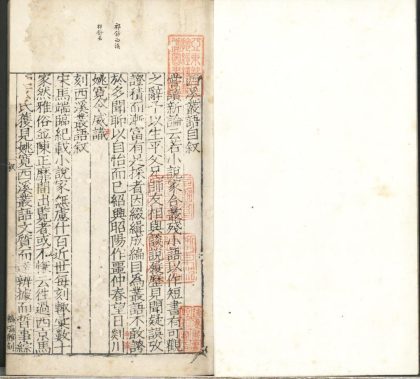 西溪叢語自叙
嘗讀新論云若小說家合叢殘小語以作短書有可觀
之辭予以生平父兄師友相與談說履歷見聞疑誤攷
證積而漸富有足採者因綴緝成編目為叢語不敢誇
於多聞聊以自怡而已紹興昭陽作噩仲春望日剡川
姚寬令威識
刻西溪叢語叙
宋馬端臨紀載小說家無慮什百近世每刻輒寔數十
家然雅俗並陳正靡閒出覽者或不快云往過西亭
氏獲見姚寬西溪叢語文質而辨據而晢事綜